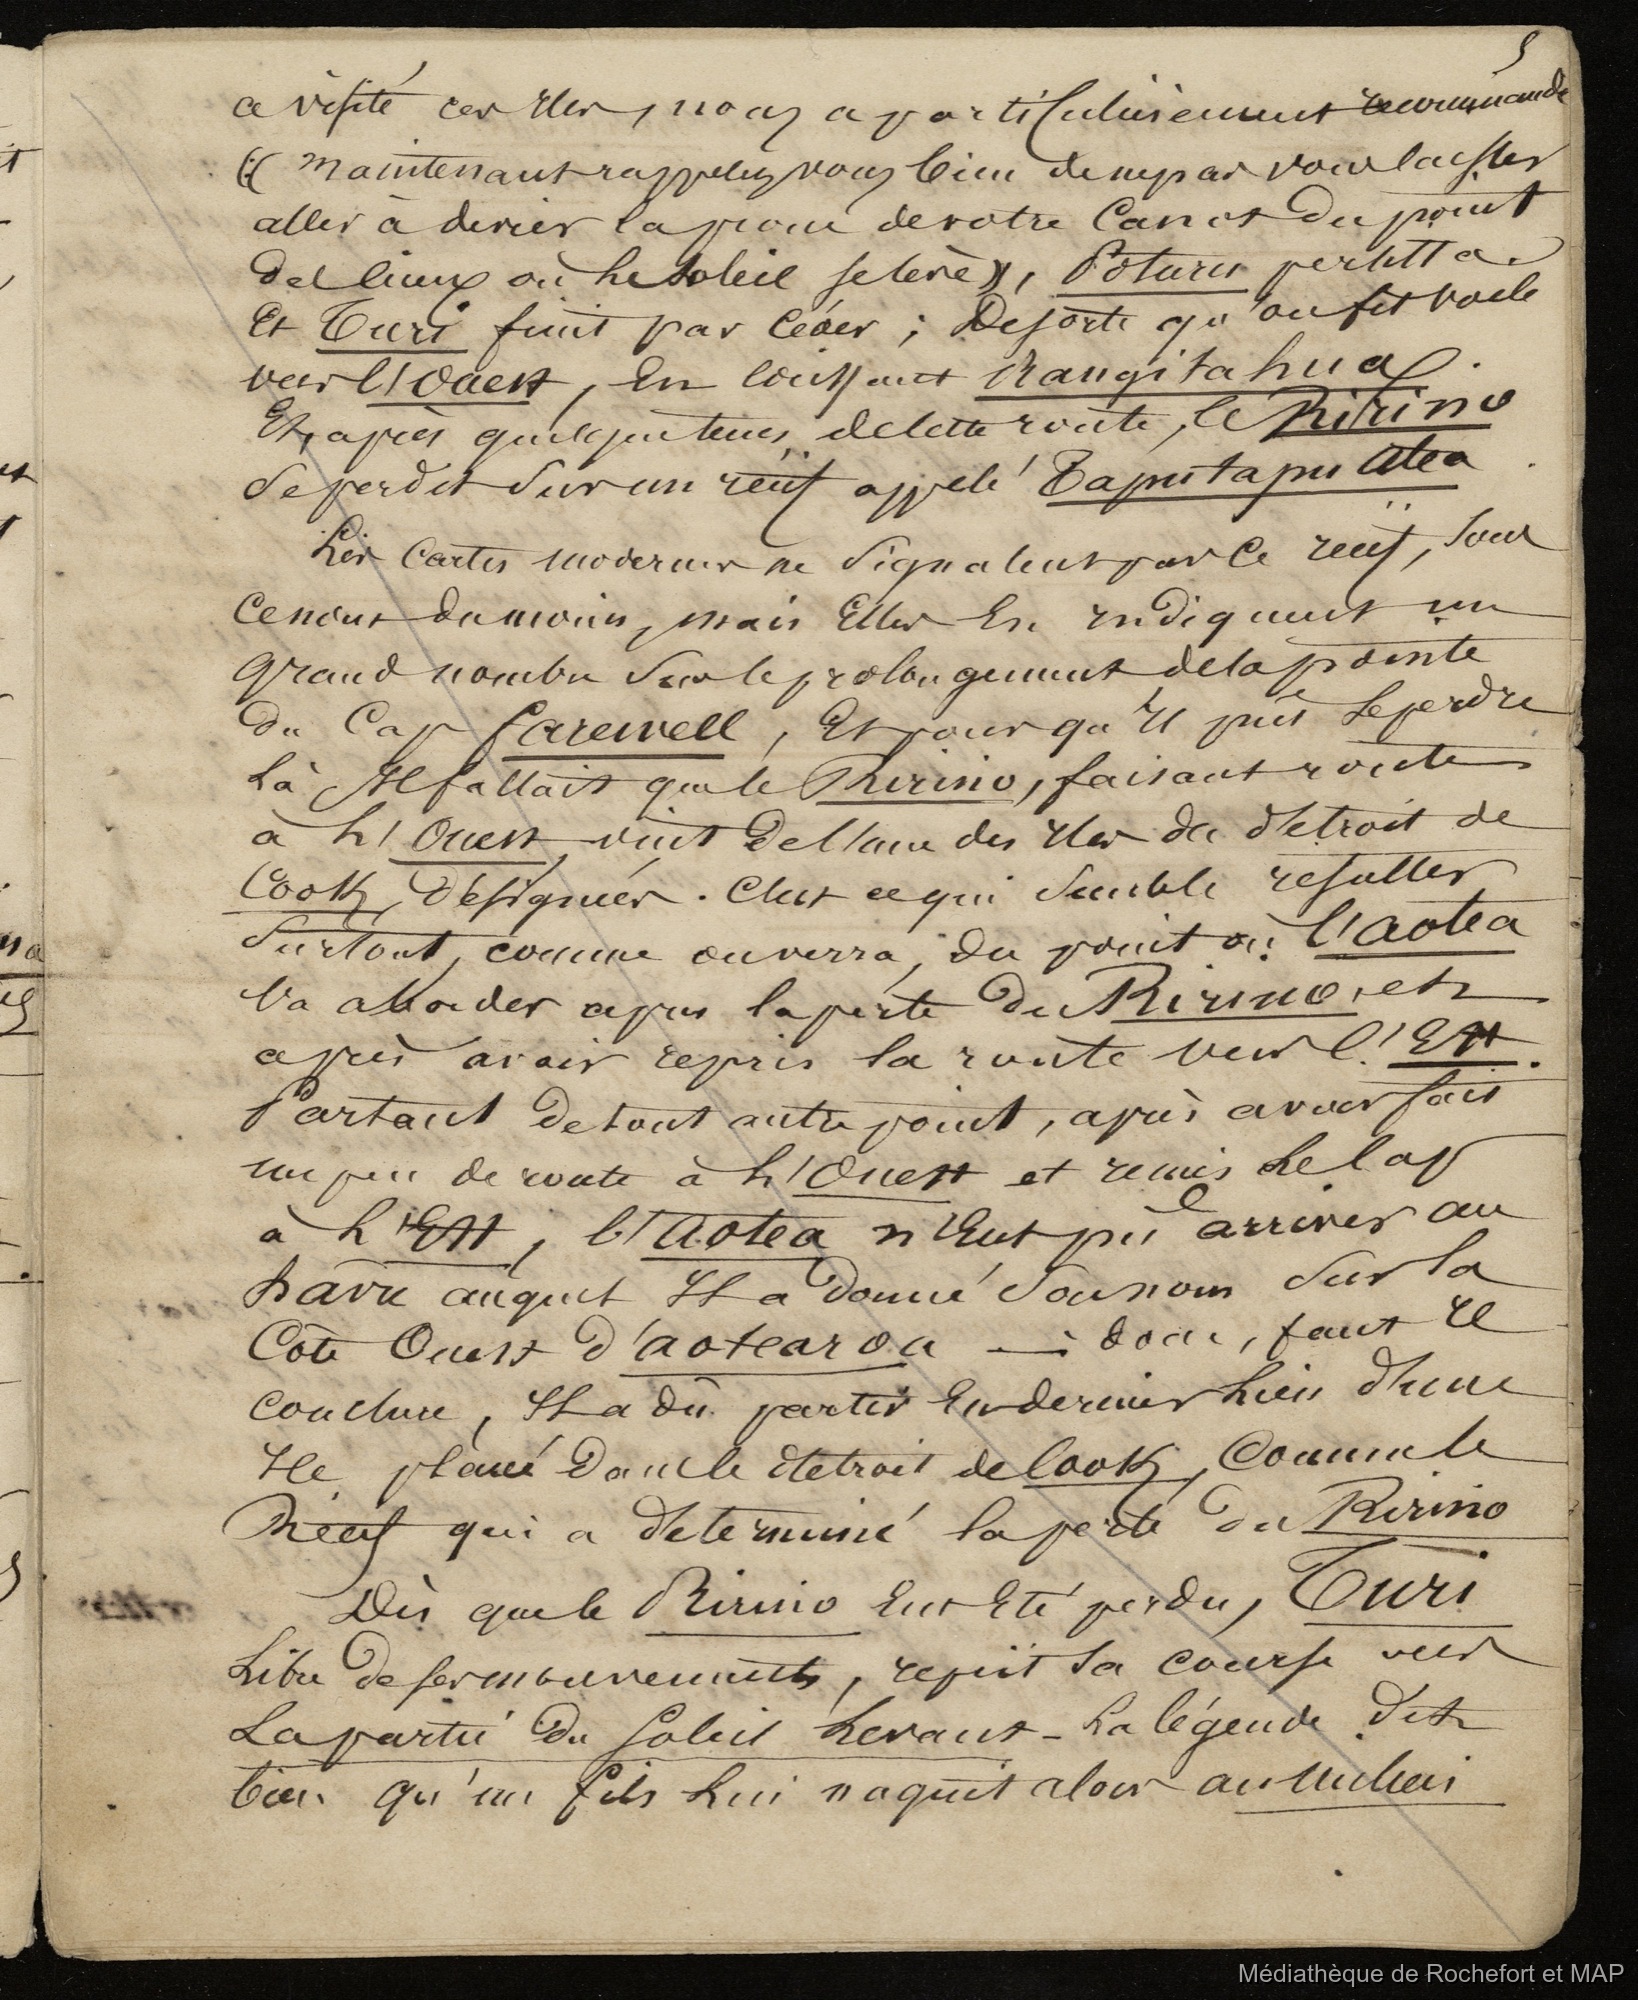 5
a visité ces Iles, nous a particulièrement recommandé
(( maintenant rappelez vous bien de ne pas vous laisser
aller à devier la proue de votre Canot du point
des lieux où le soleil se lève )), Poturu persista
Et Turi finit par céder ; De sorte qu'on fit voile
vers l'Ouest, En laissant Rangitahua.
Et, après quelques tems de cette route, le Ririno
se perdit sur un récif appelé Taputapuatea
Les Cartes modernes ne signalent pas ce récif, sous
ce nom du moins, mais Elles En indiquent un
grand nombre sur le prolongement de la pointe
du Cap farewell, Et pour qu'Il pût se perdre
là Il fallait que le Ririno, faisant route
à l'Ouest, vint de l'une des Iles du détroit de
Cook, désignées. C'est ce qui semble resulter
surtout, comme on verra, du point où l'Aotea
va aborder apres la perte du Ririno, et
après avoir repris la route vers l'Est.
Partant de tout autre point, après avoir fait
un peu de route à l'Ouest et remis le Cap
à l'Est, l'Aotea n'Eut pû arriver au
havre auquel Il a donné son nom sur la
Côte Ouest d'aotearoa — donc, faut Il
conclure, Il a dû partir En dernier lieu d'une
Ile placée dans le détroit de Cook, Comme le
Récif qui a déterminé la perte du Ririno
Dès que le Ririno Eut Eté perdu, Turi
libre de ses mouvements, reprit sa course vers
La partie du Soleil Levant - La légende dit
bien qu'un fils lui naquit alors au milieu
Médiathèque de Rochefort et MAP